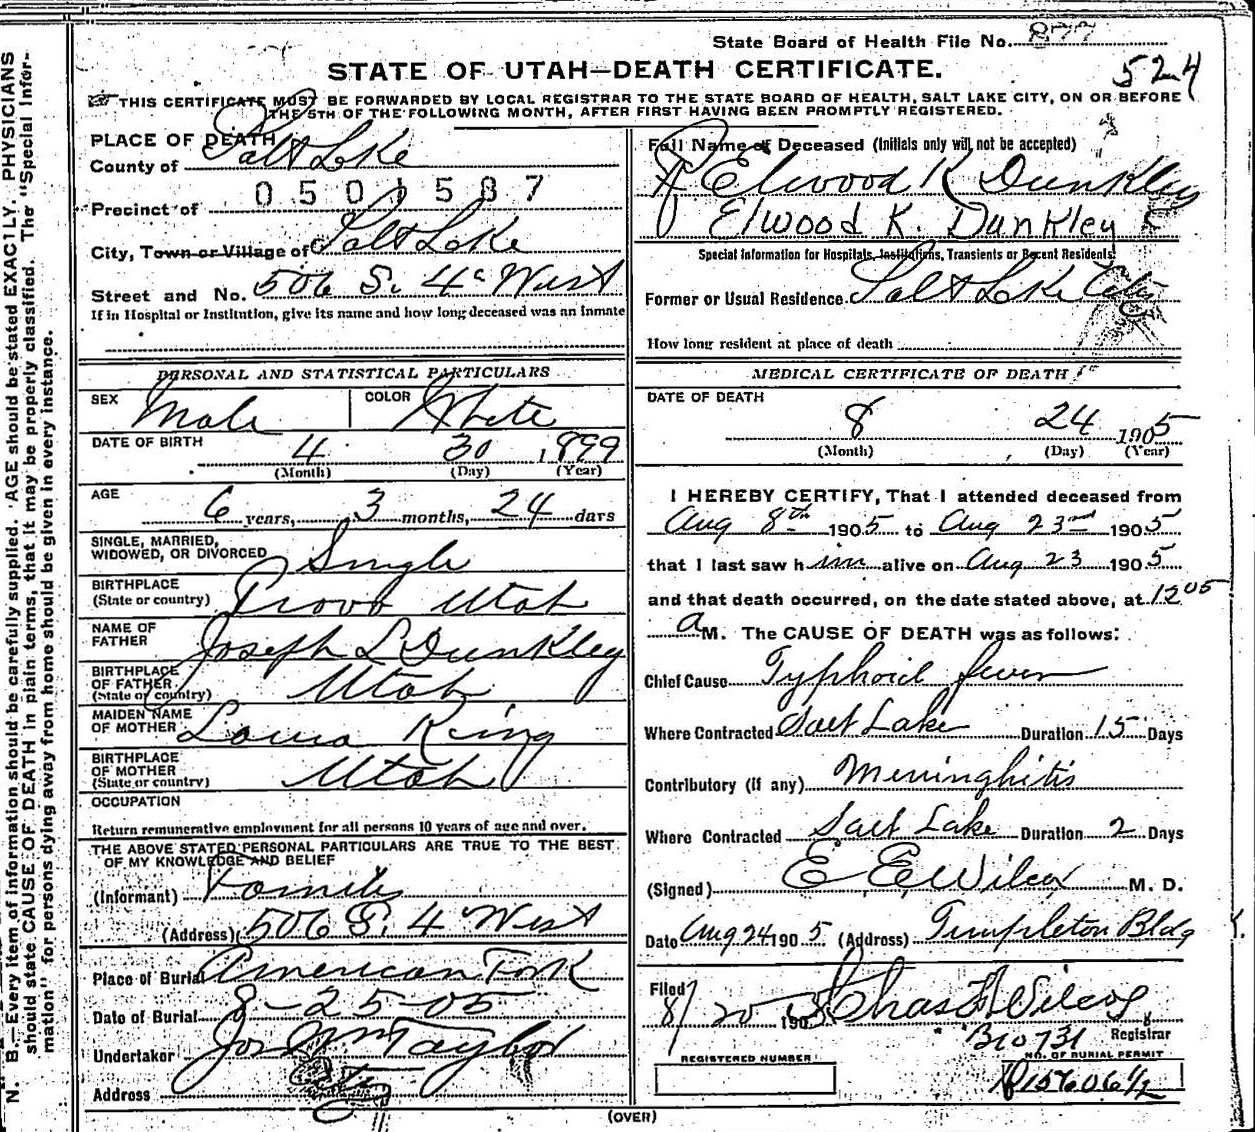 State Board of Health File No. 877
524
STATE OF UTAH—DEATH CERTIFICATE.
THIS CERTIFICATE MUST BE FORWARDED BY LOCAL REGISTRAR TO THE STATE BOARD OF HEALTH, SALT LAKE CITY, ON OR BEFORE
THE 5TH OF THE FOLLOWING MONTH, AFTER FIRST HAVING BEEN PROMPTLY REGISTERED.
N. B.—Every item of information should be carefully supplied. AGE should be stated EXACTLY. PHYSICIANS
should state CAUSE OF DEATH in plain terms, that it may be properly classified. The "Special Infor-
mation" for persons dying away from home should be given in every instance.
PLACE OF DEATH
County of Salt Lake
0501587
Precinct of
City, Town or Village of Salt Lake
Street and No. 506 S. 4th West
If in Hospital or Institution, give its name and how long deceased was an inmate
Full Name of Deceased (Initials only will not be accepted)
Elwood K Dunkley
Elwood K. Dunkley
Special Information for Hospitals, Institutions, Transients or Recent Residents
Former or Usual Residence Salt Lake City
How long resident at place of death
PERSONAL AND STATISTICAL PARTICULARS
SEX Male COLOR White
DATE OF BIRTH 4 30 1899
(Month) (Day) (Year)
AGE 6 years, 3 months, 24 days
SINGLE, MARRIED,
WIDOWED, OR DIVORCED Single
BIRTHPLACE
(State or country) Provo Utah
NAME OF
FATHER Joseph L Dunkley
BIRTHPLACE
OF FATHER Utah
(State or country)
MAIDEN NAME
OF MOTHER Louisa King
BIRTHPLACE
OF MOTHER Utah
(State or country)
OCCUPATION
Return remunerative employment for all persons 10 years of age and over.
THE ABOVE STATED PERSONAL PARTICULARS ARE TRUE TO THE BEST
OF MY KNOWLEDGE AND BELIEF
(Informant) Family
(Address) 506 S. 4 West
Place of Burial American Fork
Date of Burial 8-25-05
Undertaker Jos Wm Taylor
Address City
MEDICAL CERTIFICATE OF DEATH
DATE OF DEATH
8 24 1905
(Month) (Day) (Year)
I HEREBY CERTIFY, That I attended deceased from
Aug 8th 1905 to Aug 23rd 1905
that I last saw him alive on Aug 23 1905
and that death occurred, on the date stated above, at 12 05
a M. The CAUSE OF DEATH was as follows:
Chief Cause Typhoid fever
Where Contracted Salt Lake Duration 15 Days
Contributory (if any) Meninghitis
Where Contracted Salt Lake Duration 2 Days
(Signed) E E Wilcox M. D.
Date Aug 24 1905 (Address) Templeton Bldg
Filed
8/25 1905 Chas F Wilcox
Registrar
B10731
REGISTERED NUMBER
NO. OF BURIAL PERMIT
(OVER)